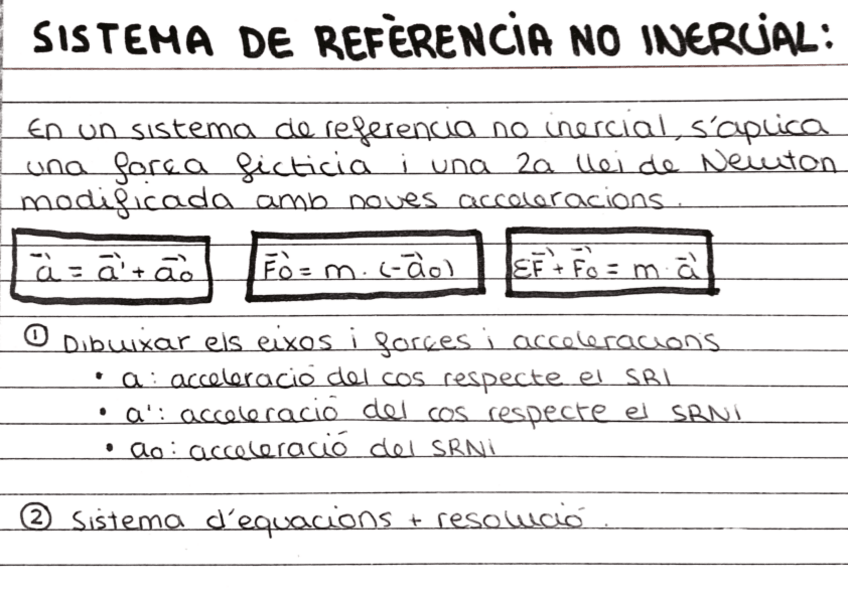 SISTEMA DE REFÈRENCIA NO INERCIAL:
En un sistema de referencia no inercial, s'aplica
una força ficticia i una 2a llei de Newton
modificada amb noves acceleracions.
a⃗ = a⃗' + a⃗o F⃗o = m · (-a⃗o) ΣF⃗ + F⃗o = m · a⃗'
① Dibuixar els eixos i forces i acceleracions
• a: acceleració del cos respecte el SRI
• a': acceleració del cos respecte el SRNI
• ao: acceleració del SRNI
② Sistema d'equacions + resolució.